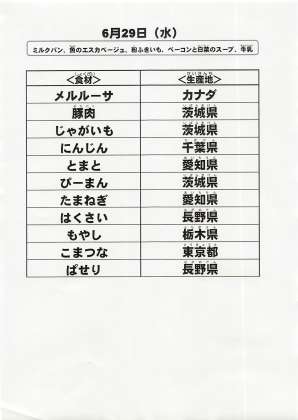 6月29日（水）
ミルクパン、魚のエスカベージュ、粉ふきいも、ベーコンと白菜のスープ、牛乳
＜食材＞ ＜生産地＞
メルルーサ カナダ
豚肉 茨城県
じゃがいも 茨城県
にんじん 千葉県
とまと 愛知県
ぴーまん 茨城県
たまねぎ 愛知県
はくさい 長野県
もやし 栃木県
こまつな 東京都
ぱせり 長野県